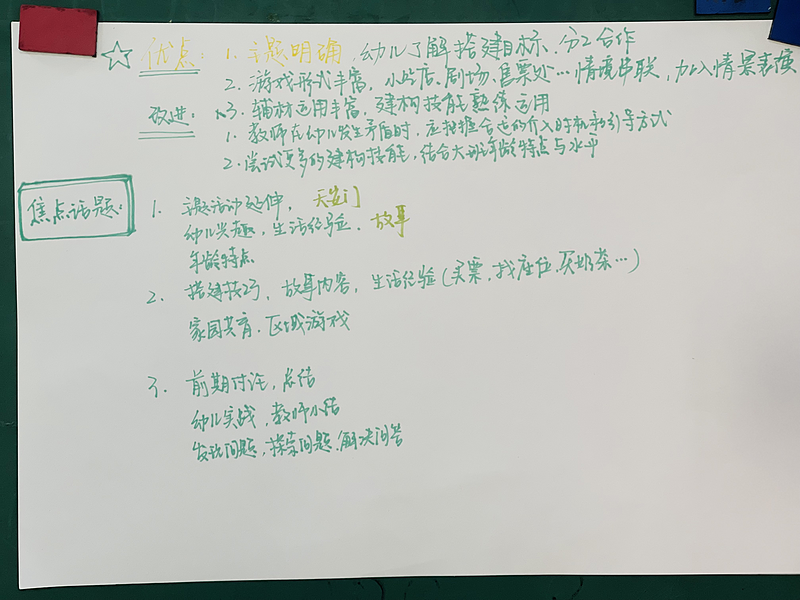 ☆ 优点：1. 主题明确，幼儿了解搭建目标、分工合作
2. 游戏形式丰富，小卖店、剧场、售票处…情境串联，加入情景表演
3. 辅材运用丰富，建构技能熟练运用
改进：1. 教师在幼儿发生矛盾时，应把握合适的介入时机和引导方式
2. 尝试更多的建构技能，结合大班年龄特点与水平
焦点话题：
1. 主题活动延伸，天安门
幼儿兴趣，生活经验，故事
年龄特点
2. 搭建技巧，故事内容，生活经验(买票，找座位，买奶茶…)
家园共育、区域游戏
3. 前期讨论，总结
幼儿实战，教师小结
发现问题，探索问题，解决问答